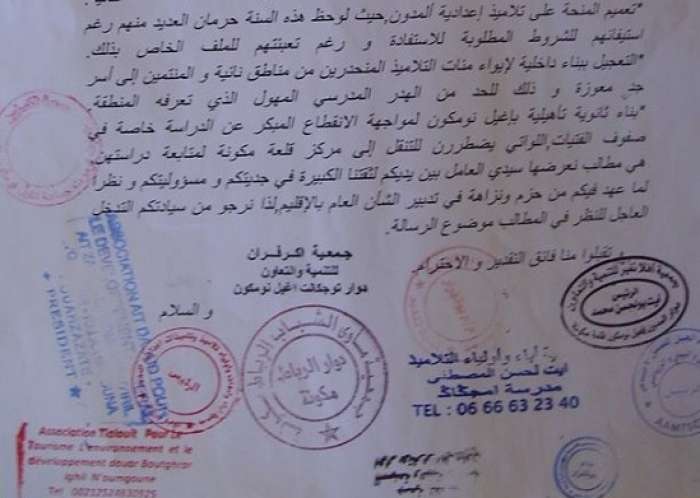 "تعميم المنحة على تلاميذ إعدادية ألمدون,حيث لوحظ هذه السنة حرمان العديد منهم رغم
استيفائهم للشروط المطلوبة للاستفادة و رغم تعبئتهم للملف الخاص بذلك.
"التعجيل ببناء داخلية لإيواء مئات التلاميذ المنحدرين من مناطق نائية و المنتمين إلى أسر
جد معوزة و ذلك للحد من الهدر المدرسي المهول الذي تعرفه المنطقة.
"بناء ثانوية تأهيلية بإغيل نومكون لمواجهة الانقطاع المبكر عن الدراسة خاصة في
صفوف الفتيات,اللواتي يضطررن للتنقل إلى مركز قلعة مكونة لمتابعة دراستهن.
هي مطالب نعرضها سيدي العامل بين يديكم لثقتنا الكبيرة في جديتكم و مسؤوليتكم و نظرا
لما عهد فيكم من حزم ونزاهة في تدبير الشأن العام بالإقليم,لذا نرجو من سيادتكم التدخل
العاجل للنظر في المطالب موضوع الرسالة.
و تقبلوا منا فائق التقدير و الاحترام.
و السلام
جمعية اكرفران
للتنمية والتعاون
دوار توجكالت اغيل نومكون
الرئيس
ايت بولحسن محمد
آباء وأولياء التلاميذ
ايت لحسن المصطفى
مدرسة امجكاك
TEL : 06 66 63 22 40
دوار الرباط
مكونة
الرئيس
ASSOCIATION AIT
LE DEVE
OUARZAZATE
* PRESIDENT *
Association Tialouit Pour Le
Tourisme L'environnement et le
développement douar Boutghrar
Ighil N'oumgoune
Tel : 00212524830825